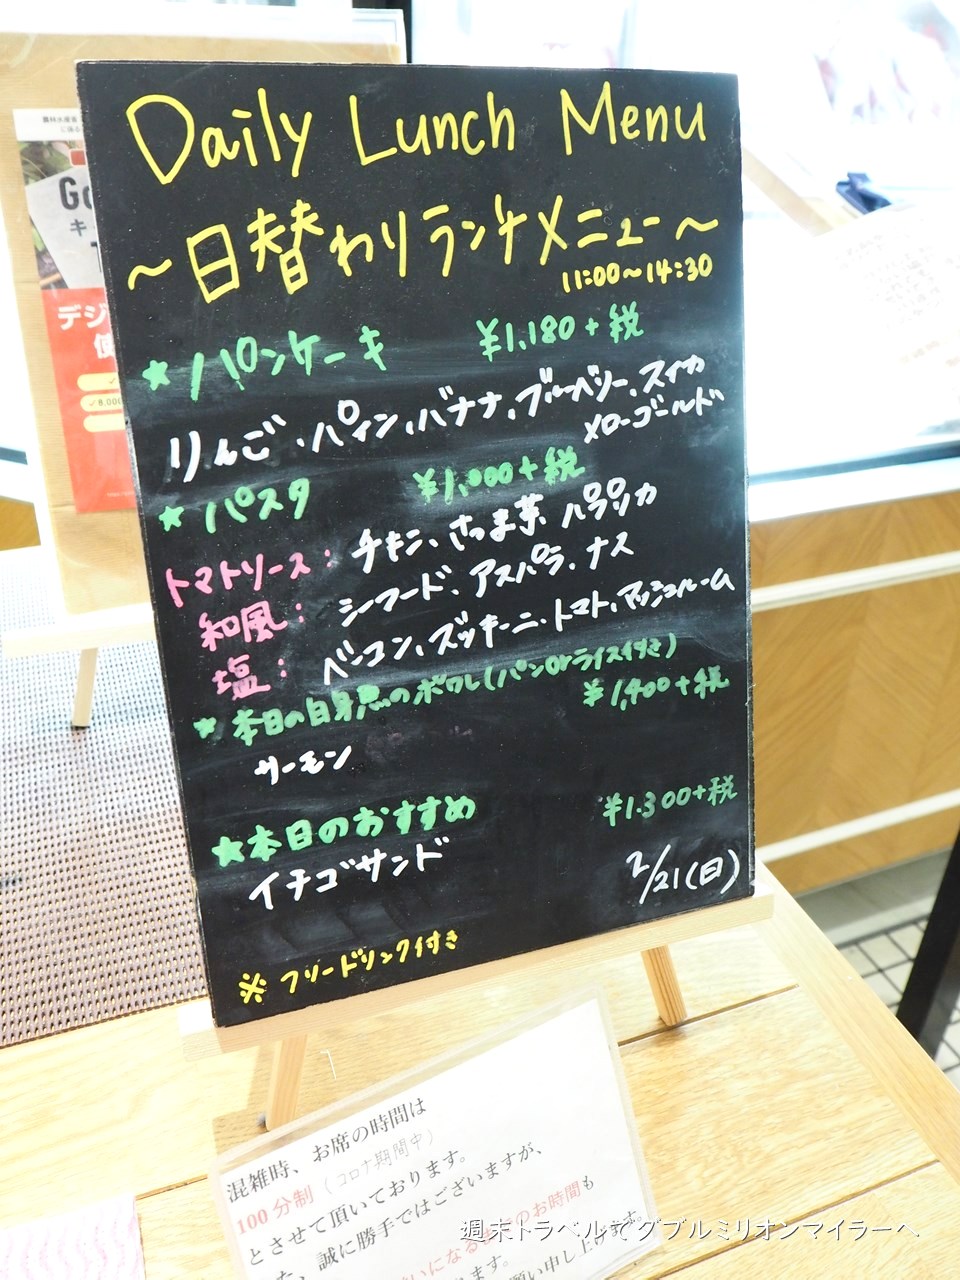 Daily Lunch Menu
～日替わりランチメニュー～
11:00～14:30
★パンケーキ ¥1,180+税
りんご、パイン、バナナ、ブルーベリー、スイカ
メローゴールド
★パスタ ¥1,000+税
トマトソース: チキン、さつま芋 パプリカ
和風: シーフード、アスパラ、ナス
塩: ベーコン、ズッキーニ、トマト、マッシュルーム
★本日の白身魚のポワレ(パンorライス付き)
¥1,400+税
サーモン
★本日のおすすめ ¥1.300+税
イチゴサンド
2/21(日)
※フリードリンク付き
混雑時、お席の時間は
100分制(コロナ期間中)
とさせて頂いております。
誠に勝手ではございますが、
になる のお時間も
願い申し上げます。
デジ
使
8,000
Go
キ
週末トラベルでダブルミリオンマイラーへ